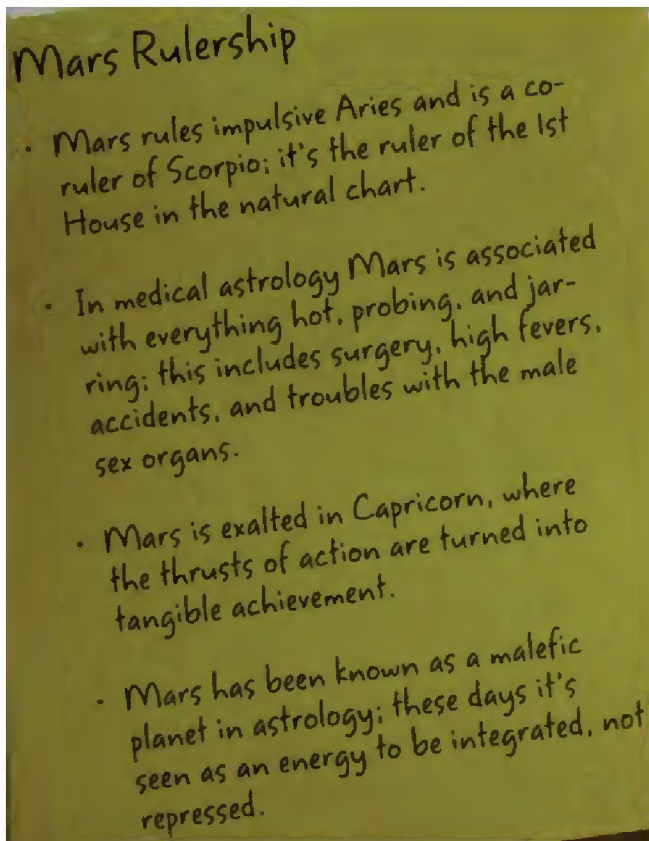 Mars Rulership
· Mars rules impulsive Aries and is a co-
ruler of Scorpio; it's the ruler of the 1st
House in the natural chart.
· In medical astrology Mars is associated
with everything hot, probing, and jar-
ring; this includes surgery, high fevers,
accidents, and troubles with the male
sex organs.
· Mars is exalted in Capricorn, where
the thrusts of action are turned into
tangible achievement.
· Mars has been known as a malefic
planet in astrology; these days it's
seen as an energy to be integrated, not
repressed.